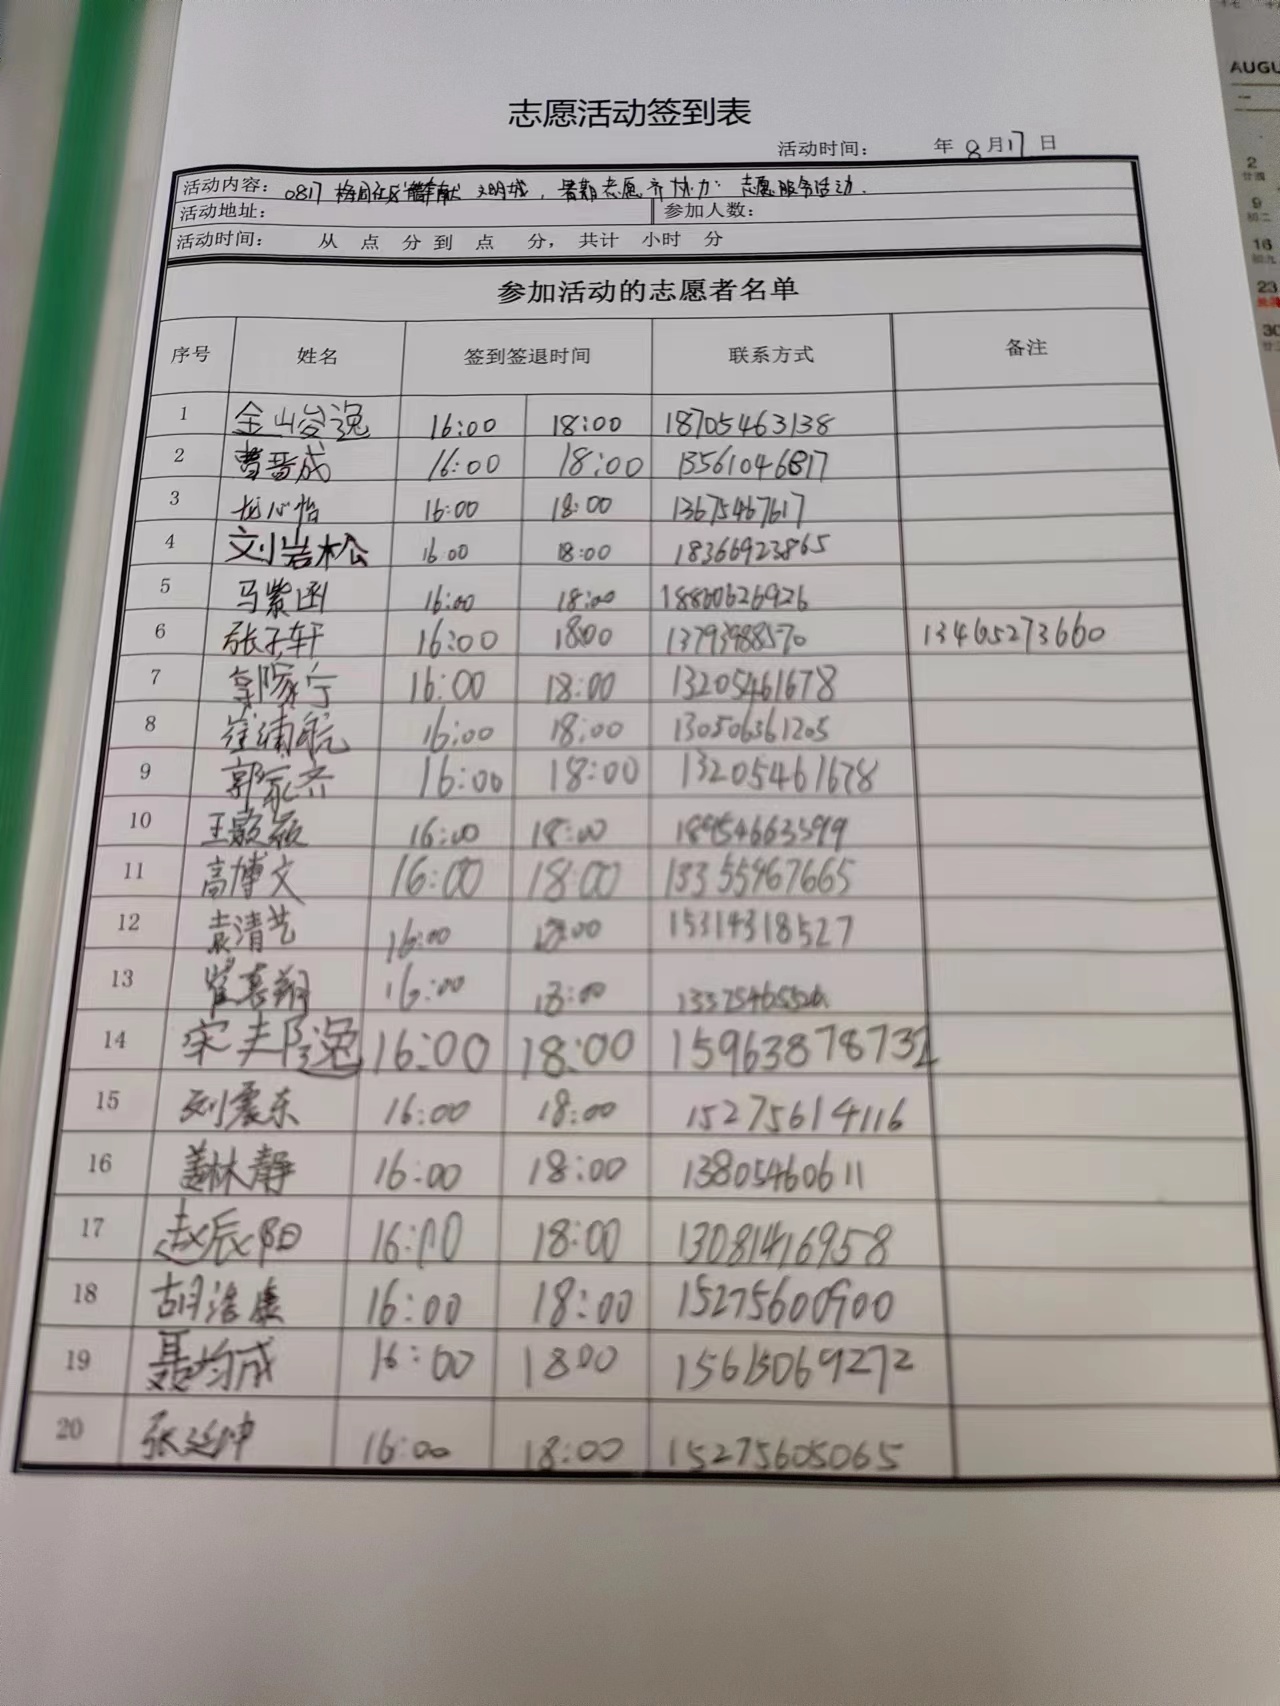 志愿活动签到表
活动时间: 年 8月17日
活动内容: 0817 文明城,暑期志愿齐协力 志愿服务活动.
活动地址: 参加人数:
活动时间: 从 点 分 到 点 分, 共计 小时 分
参加活动的志愿者名单
序号 姓名 签到签退时间 联系方式 备注
1 金山俊逸 16:00 18:00 18705463138
2 曹晋成 16:00 18:00 13561046817
3 龙心怡 16:00 18:00 13675467617
4 刘岩松 16:00 18:00 18366923865
5 马紫函 16:00 18:00 18860626926
6 张子轩 16:00 18:00 13793988570 13465273660
7 郭家宁 16:00 18:00 13205461678
8 16:00 18:00 130506361205
9 郭家齐 16:00 18:00 13205461678
10 16:00 18:00 18954663599
11 高博文 16:00 18:00 13355467665
12 袁清艺 16:00 18:00 15314318527
13 16:00 18:00
14 16:00 18:00 15963878732
15 刘震东 16:00 18:00 15275614116
16 姜林静 16:00 18:00 13805460611
17 赵辰阳 16:00 18:00 13081416958
18 胡浩康 16:00 18:00 15275600900
19 聂均成 16:00 1800 15615069272
20 张延坤 16:00 18:00 15275605065
AUGU
一
2
9
初二
16
初九
23
30